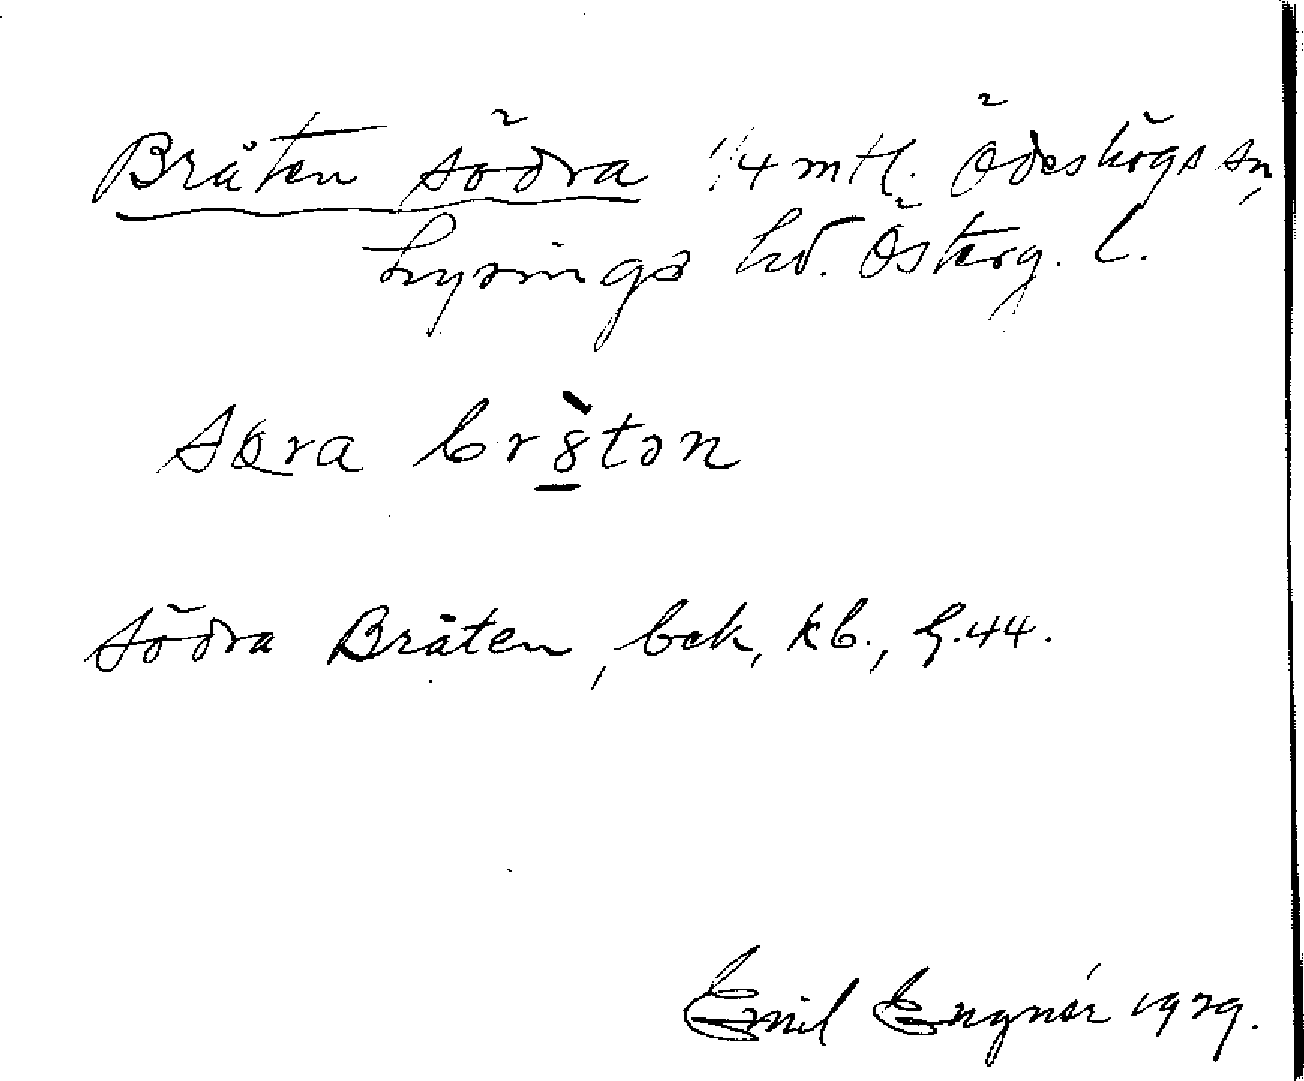 Bråten södra 1/4 mtl. Ödeshögs sn,
Lysings hd. Österg. l.
Södra Bråten, bek, kb., G.44.
Emil Engnér 1929.